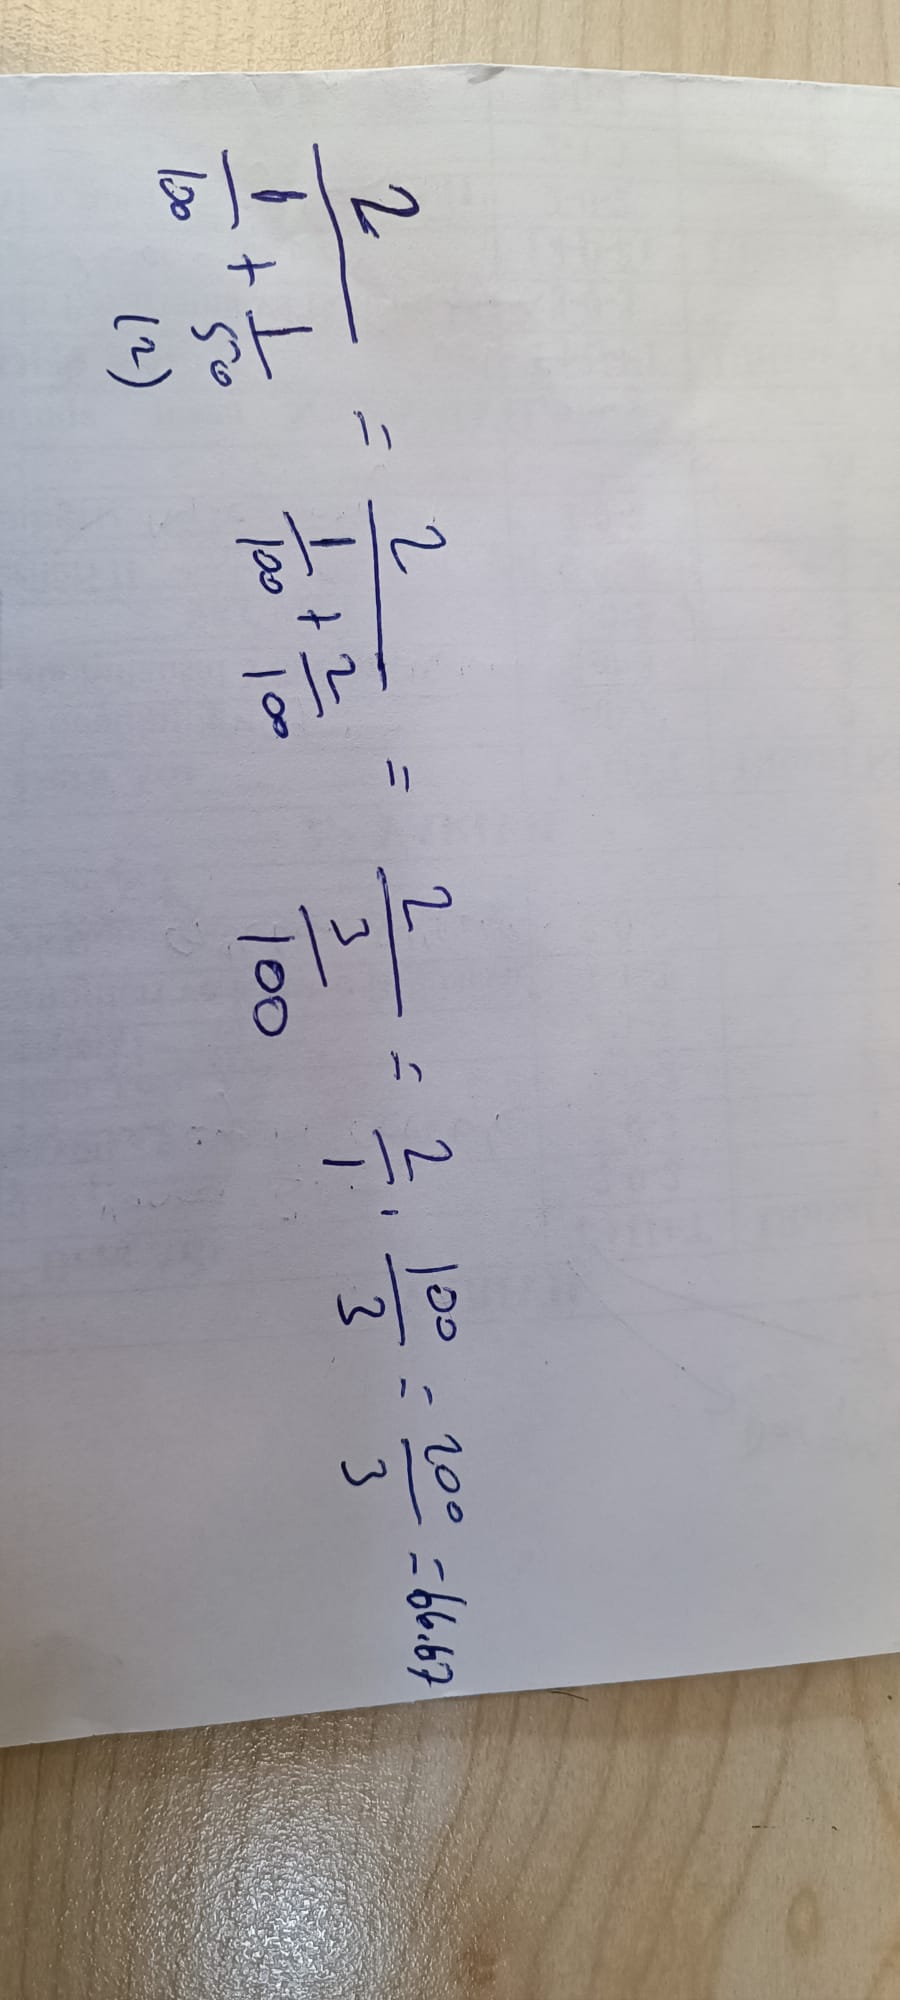 2/(1/100 + 1/50) = 2/(1/100 + 2/100) = 2/(3/100) = 2/1 · 100/3 = 200/3 = 66.67
(2)